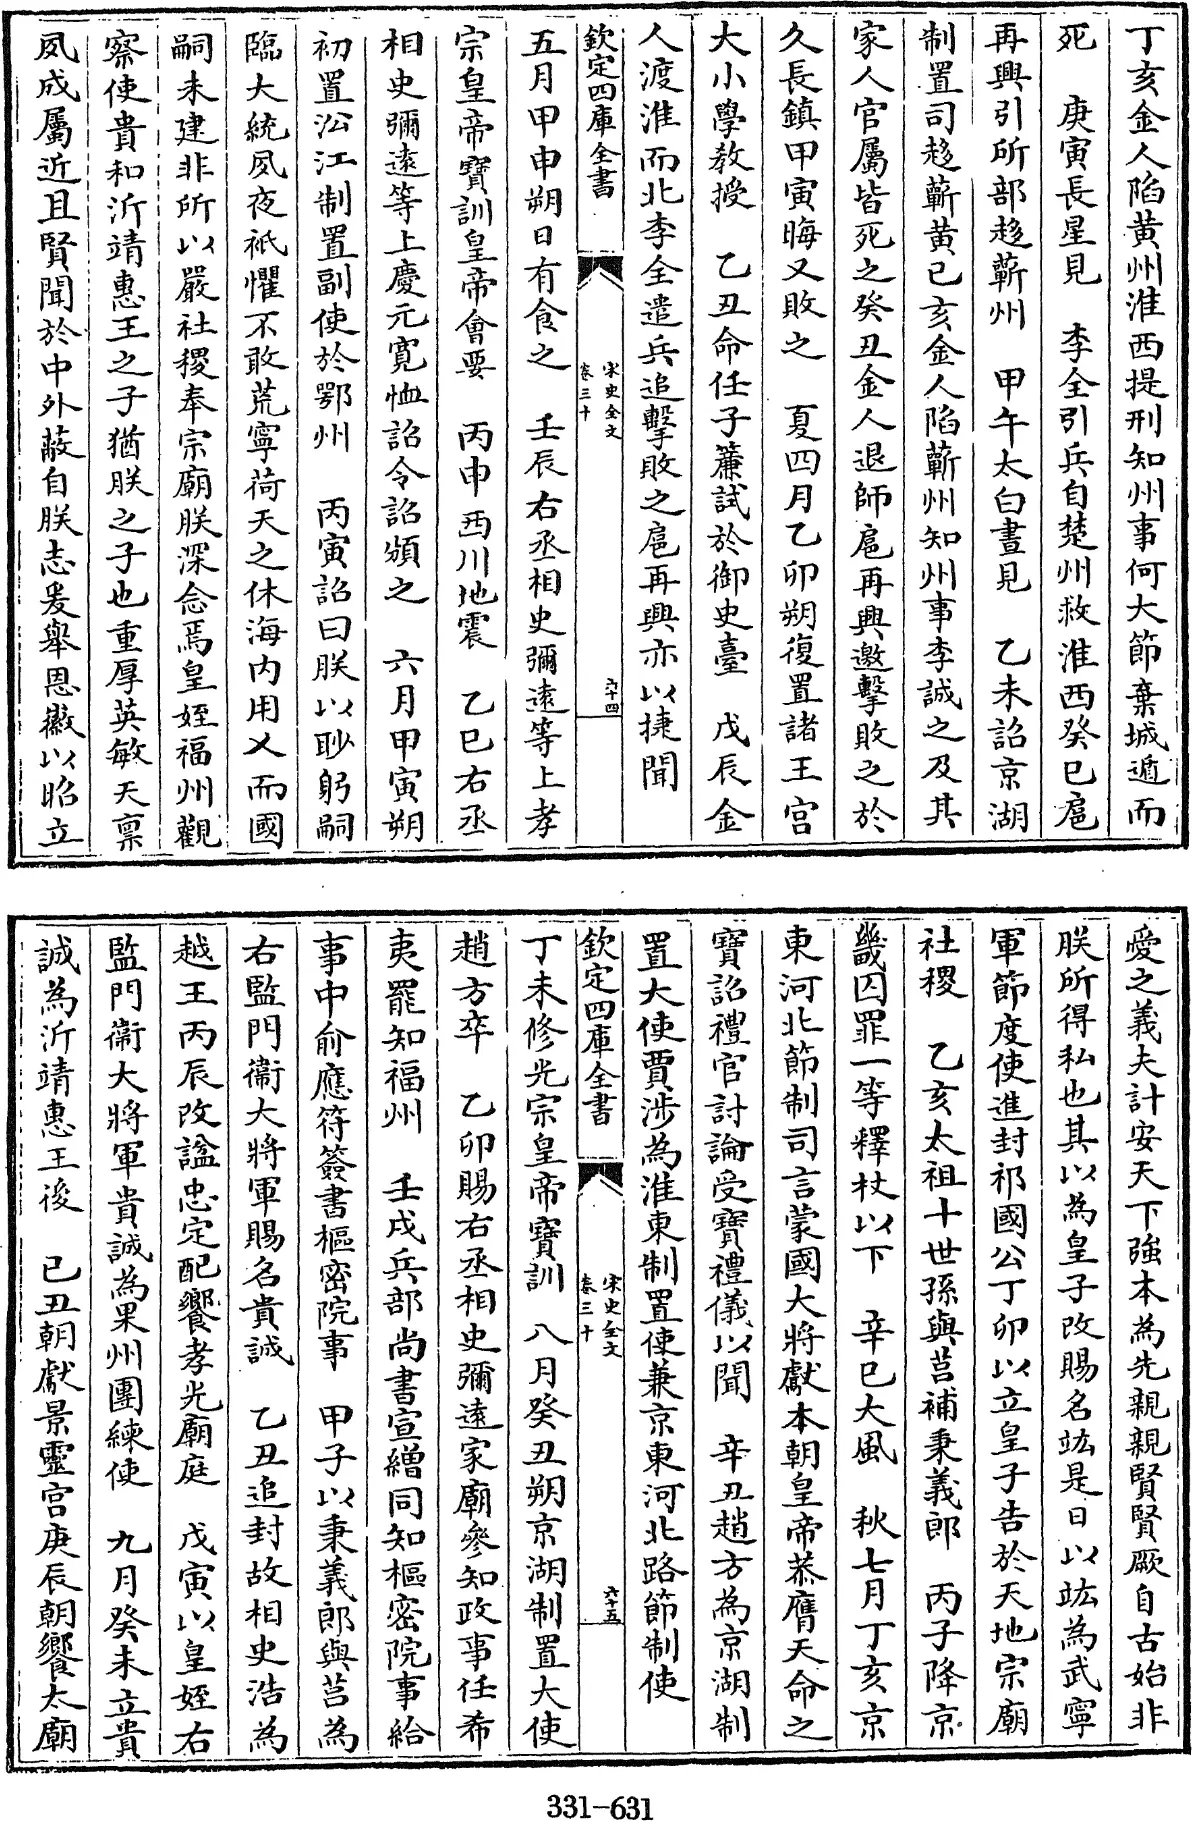 丁亥金人陷黄州淮西提刑知州事何大節棄城遁而
死　庚寅長星見　李全引兵自楚州救淮西癸巳扈
再興引所部趍蘄州　甲午太白晝見　乙未詔京湖
制置司趍蘄黄已亥金人陷蘄州知州事李誠之及其
家人官屬皆死之癸丑金人退師扈再興邀擊敗之於
久長鎮甲寅晦又敗之　夏四月乙卯朔復置諸王宫
大小學教授　乙丑命任子簾試於御史臺　戊辰金
人渡淮而北李全遣兵追擊敗之扈再興亦以捷聞
欽定四庫全書
宋史全文
卷三十
六十四
五月甲申朔日有食之　壬辰右丞相史彌遠等上孝
宗皇帝寳訓皇帝會要　丙申西川地震　乙巳右丞
相史彌遠等上慶元寛恤詔令詔頒之　六月甲寅朔
初置沿江制置副使於鄂州　丙寅詔曰朕以眇躬嗣
臨大統夙夜祇懼不敢荒寧荷天之休海内用乂而國
嗣未建非所以嚴社稷奉宗廟朕深念焉皇姪福州觀
察使貴和沂靖惠王之子猶朕之子也重厚英敏天禀
夙成屬近且賢聞於中外蔽自朕志爰舉恩徽以昭立
愛之義夫計安天下強本為先親親賢賢厥自古始非
朕所得私也其以為皇子改賜名竑是日以竑為武寧
軍節度使進封祁國公丁卯以立皇子告於天地宗廟
社稷　乙亥太祖十世孫與莒補秉義郎　丙子降京
畿囚罪一等釋杖以下　辛巳大風　秋七月丁亥京
東河北節制司言蒙國大將獻本朝皇帝恭膺天命之
寳詔禮官討論受寳禮儀以聞　辛丑趙方為京湖制
置大使賈涉為淮東制置使兼京東河北路節制使
欽定四庫全書
宋史全文
卷三十
六十五
丁未修光宗皇帝寳訓　八月癸丑朔京湖制置大使
趙方卒　乙卯賜右丞相史彌遠家廟參知政事任希
夷罷知福州　壬戌兵部尚書宣繒同知樞密院事給
事中俞應符簽書樞密院事　甲子以秉義郎與莒為
右監門衞大將軍賜名貴誠　乙丑追封故相史浩為
越王丙辰改諡忠定配饗孝光廟庭　戊寅以皇姪右
監門衞大將軍貴誠為果州團練使　九月癸未立貴
誠為沂靖惠王後　已丑朝獻景靈宫庚辰朝饗太廟
331-631